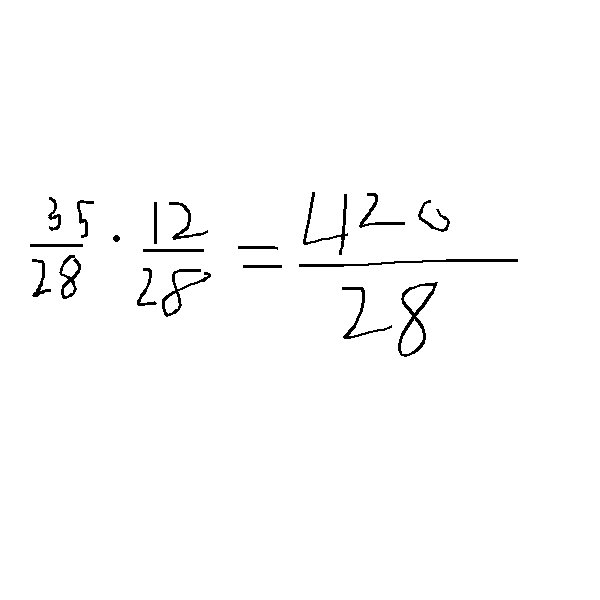 35/28 · 12/28 = 420/28